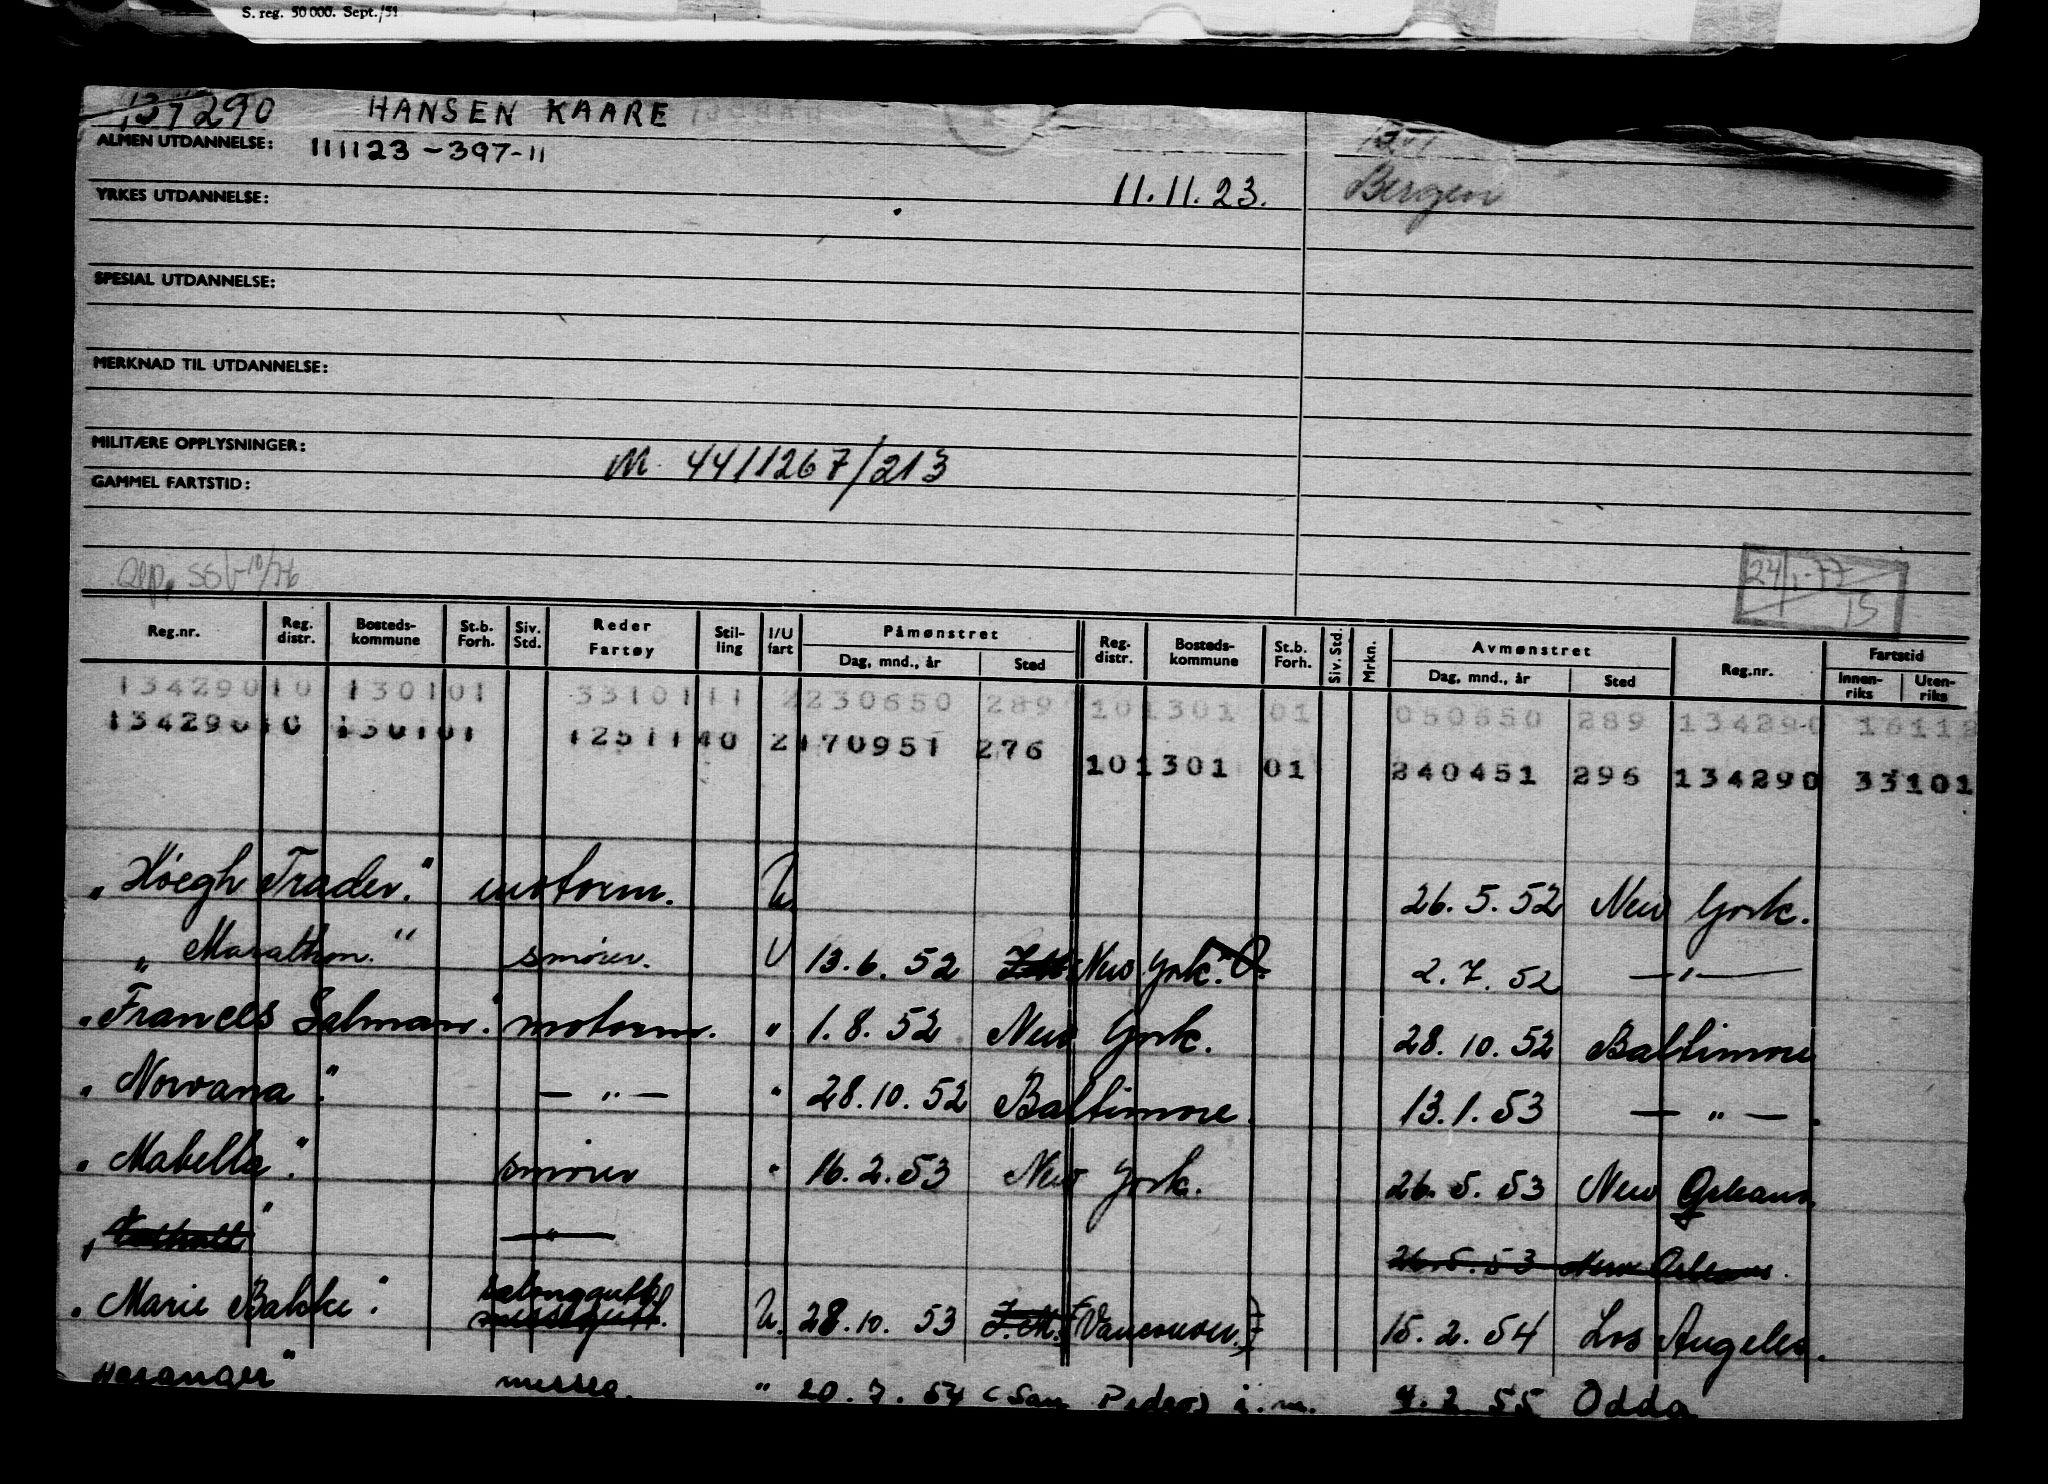 S. reg. 50 000. Sept./51
137290 HANSEN KAARE
ALMEN UTDANNELSE: 111123-397-11
YRKES UTDANNELSE: 11.11.23. Bergen
SPESIAL UTDANNELSE:
MERKNAD TIL UTDANNELSE:
MILITÆRE OPPLYSNINGER: M. 4411267/213
GAMMEL FARTSTID:
24/1-77
15
Reg.nr. Reg. distr. Bosteds-kommune St.b. Forh. Siv. Std. Reder Fartøy Stil-ling I/U fart Påmønstret Dag, mnd., år Sted Reg. distr. Bosteds-kommune St.b. Forh. Siv. Std. Mrkn. Avmønstret Dag, mnd., år Sted Reg.nr. Fartstid Innen-riks Uten-riks
13429010 130101 3310111 2230650 289 101301 01 050650 289 134290 16112
13429010 130101 1251140 2170951 276 101301 01 240451 296 134290 33101
"Höegh Trader." motorm. U 26.5.52 New York.
"Marathon." smörer. U 13.6.52 New York. 2.7.52 —"—
"Frances Salman." motorm. " 1.8.52 New York. 28.10.52 Baltimore
"Norvana". —"— " 28.10.52 Baltimore. 13.1.53 —"—.
"Mabella". smörer " 16.2.53 New York. 26.5.53 New Orleans.
" —"— 26.5.53 New Orleans.
"Marie Bakke". salonggutt U. 28.10.53 J.M. (Vancouver) 15.2.54 Los Angeles.
Heranger" messg. " 20.7.54 (San Pedro) i.m. 4.2.55 Odda